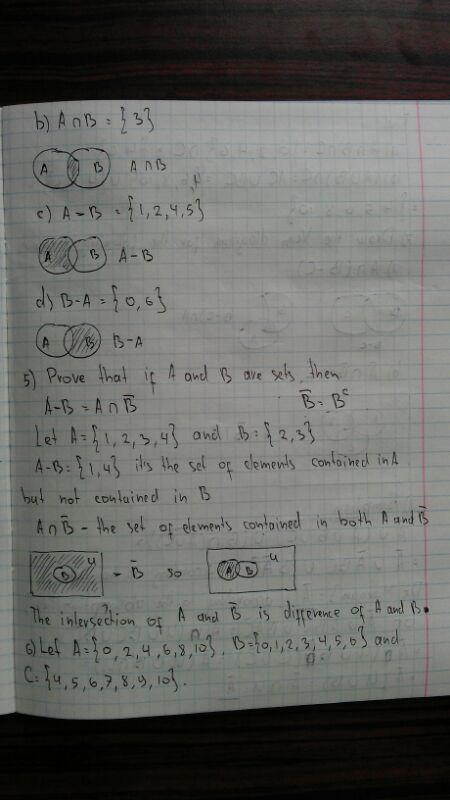 b) A ∩ B = {3}
A B A ∩ B
c) A - B = {1, 2, 4, 5}
A B A - B
d) B - A = {0, 6}
A B B - A
5) Prove that if A and B are sets, then
A - B = A ∩ B̅ B̅ = Bᶜ
Let A = {1, 2, 3, 4} and B = {2, 3}
A - B = {1, 4} it's the set of elements contained in A
but not contained in B
A ∩ B̅ - the set of elements contained in both A and B̅
B U - B̅ so A B U
The intersection of A and B̅ is difference of A and B.
6) Let A = {0, 2, 4, 6, 8, 10}, B = {0, 1, 2, 3, 4, 5, 6} and
C = {4, 5, 6, 7, 8, 9, 10}.